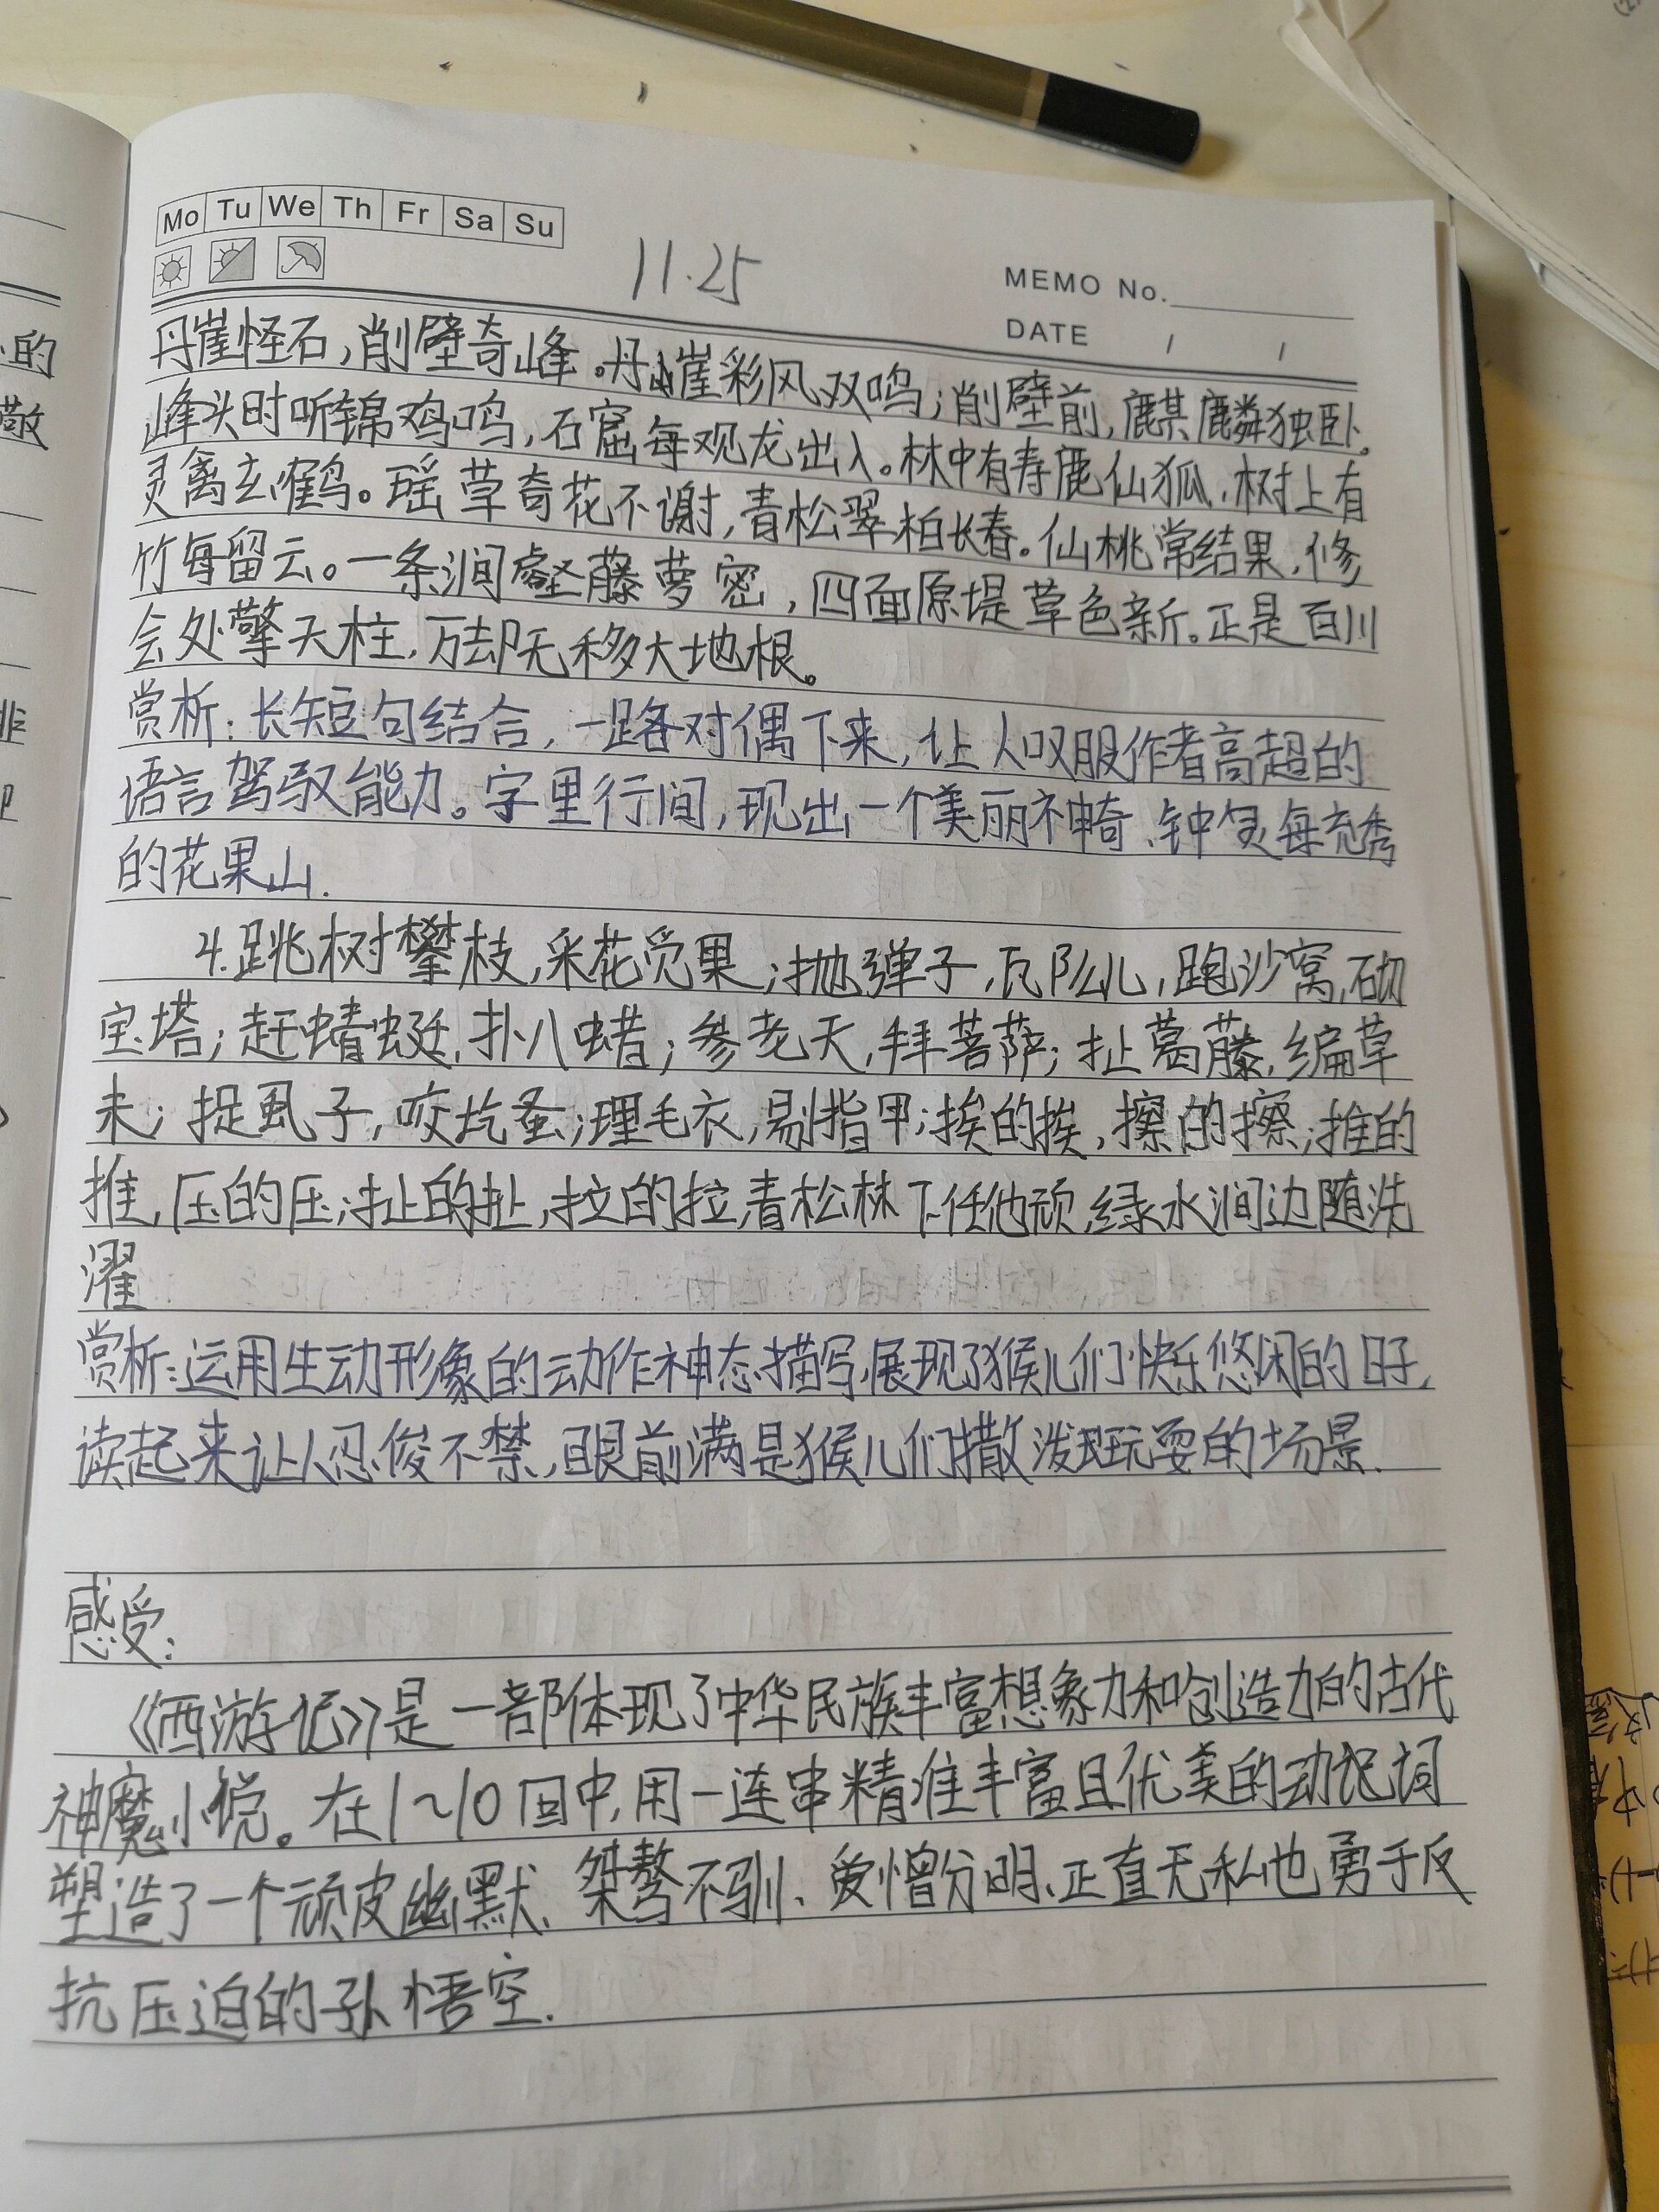 Mo Tu We Th Fr Sa Su
11.25
MEMO No.
DATE / /
丹崖怪石，削壁奇峰。丹崖彩风双鸣；削壁前，麒麟独卧。
峰头时听锦鸡鸣，石窟每观龙出入。林中有寿鹿仙狐，树上有
灵禽玄鹤。瑶草奇花不谢，青松翠柏长春。仙桃常结果，修
竹每留云。一条涧壑藤萝密，四面原堤草色新。正是百川
会处擎天柱，万劫无移大地根。
赏析：长短句结合，一路对偶下来，让人叹服作者高超的
语言驾驭能力。字里行间，现出一个美丽神奇、钟灵毓秀
的花果山.
4.跳树攀枝，采花觅果；抛弹子，瓦么儿，跑沙窝，砌
宝塔；赶蜻蜓，扑八蜡；参老天，拜菩萨；扯葛藤，编草
未；捉虱子，咬圪蚤；理毛衣，剔指甲；挨的挨，擦的擦；推的
推，压的压；扯的扯，拉的拉，青松林下任他顽，绿水涧边随洗
濯
赏析：运用生动形象的动作神态描写，展现了猴儿们快乐悠闲的日子，
读起来让人忍俊不禁，眼前满是猴儿们撒泼玩耍的场景.
感受：
《西游记》是一部体现了中华民族丰富想象力和创造力的古代
神魔小说。在1~10回中，用一连串精准丰富且优美的动词
塑造了一个顽皮幽默、桀骜不驯、爱憎分明、正直无私也勇于反
抗压迫的孙悟空.
的
敬